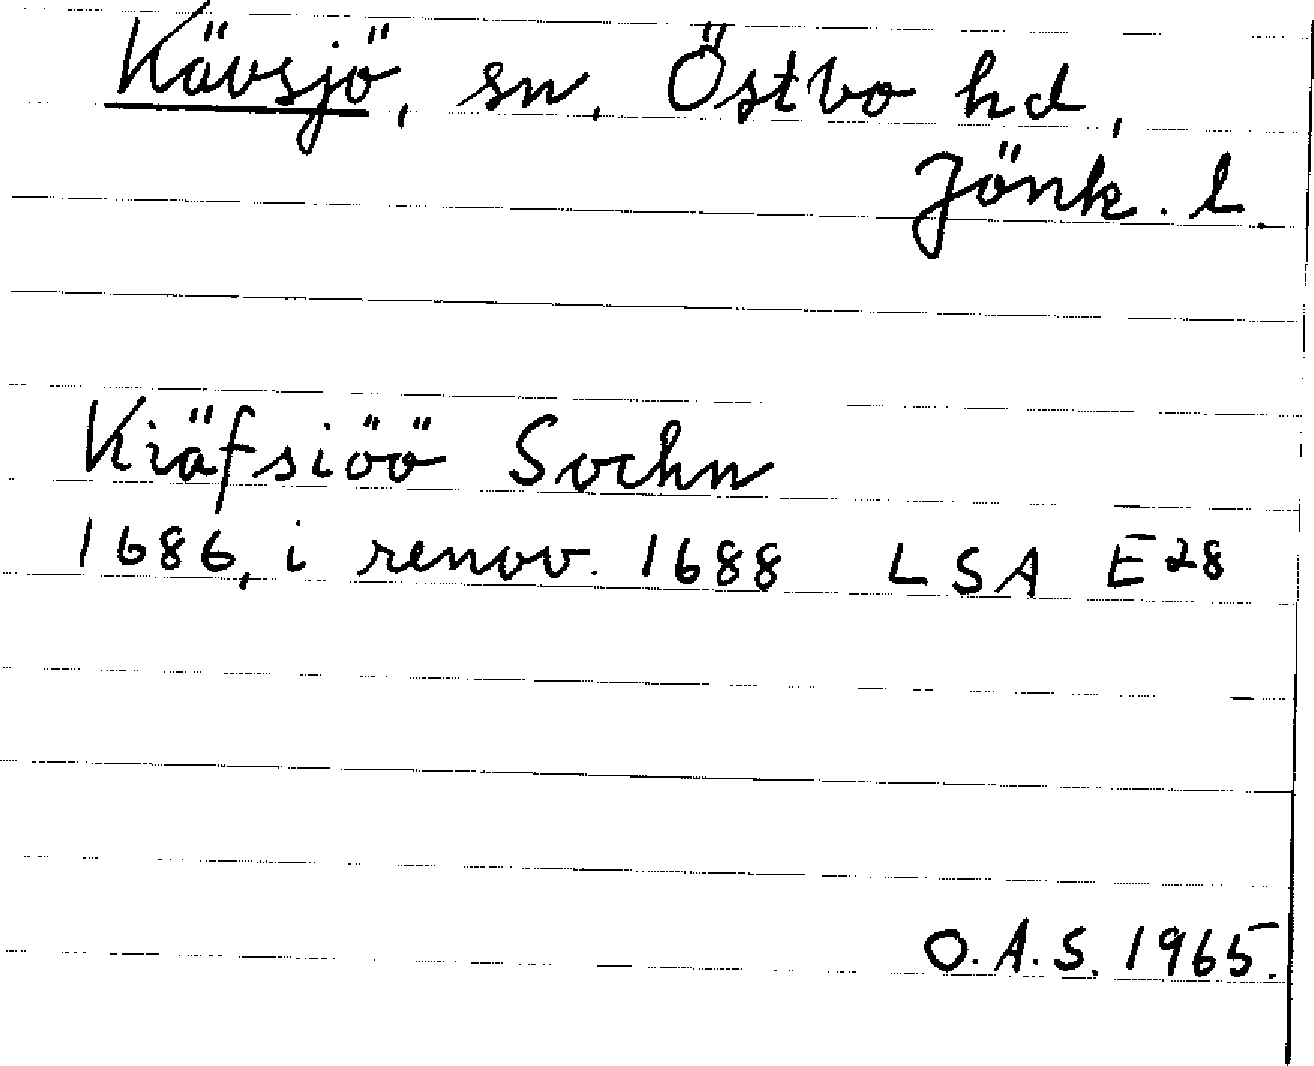 Kävsjö, sn, Östbo hd,
Jönk. l.
Kiäfsiöö Sochn
1686, i renov. 1688 LSA E28
O.A.S. 1965.